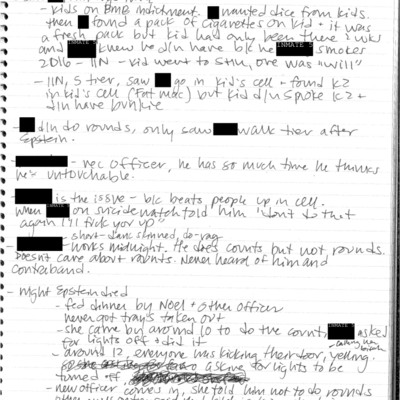 - kids on BMB indictment. wanted dice from kids.
then found a pack of cigarettes on kid + it was
a fresh pack but kid had only been there 3 wks
and INMATE 5 knew he d/n have b/c he INMATE 5 smokes
2016 - 11N - kid went to SHU, one was "will"
- 11N, 5 tier, saw go in kid's cell + found K2
in kid's cell (fat mac) but kid d/n smoke K2 +
d/n have
- d/n do rounds, only saw walk tier after
Epstein.
- rec officer, he has so much time he thinks
he's untouchable.
- is the issue - b/c beats people up in cell.
when INMATE on suicide watch told him "don't do that
again I'll fuck you up"
short - dark skinned, do-rag
- works midnight. He does counts but not rounds.
Doesn't care about rounts. Never heard of him and
contraband.
- night Epstein died
- fed dinner by Noel + other officer
never got trays taken out
- she came by around 10 to do the count, INMATE asked
for lights off + did it
- around 12, everyone was kicking their door, yelling
asking for lights to be
turned off
- new officer comes in, she told him not to do rounds